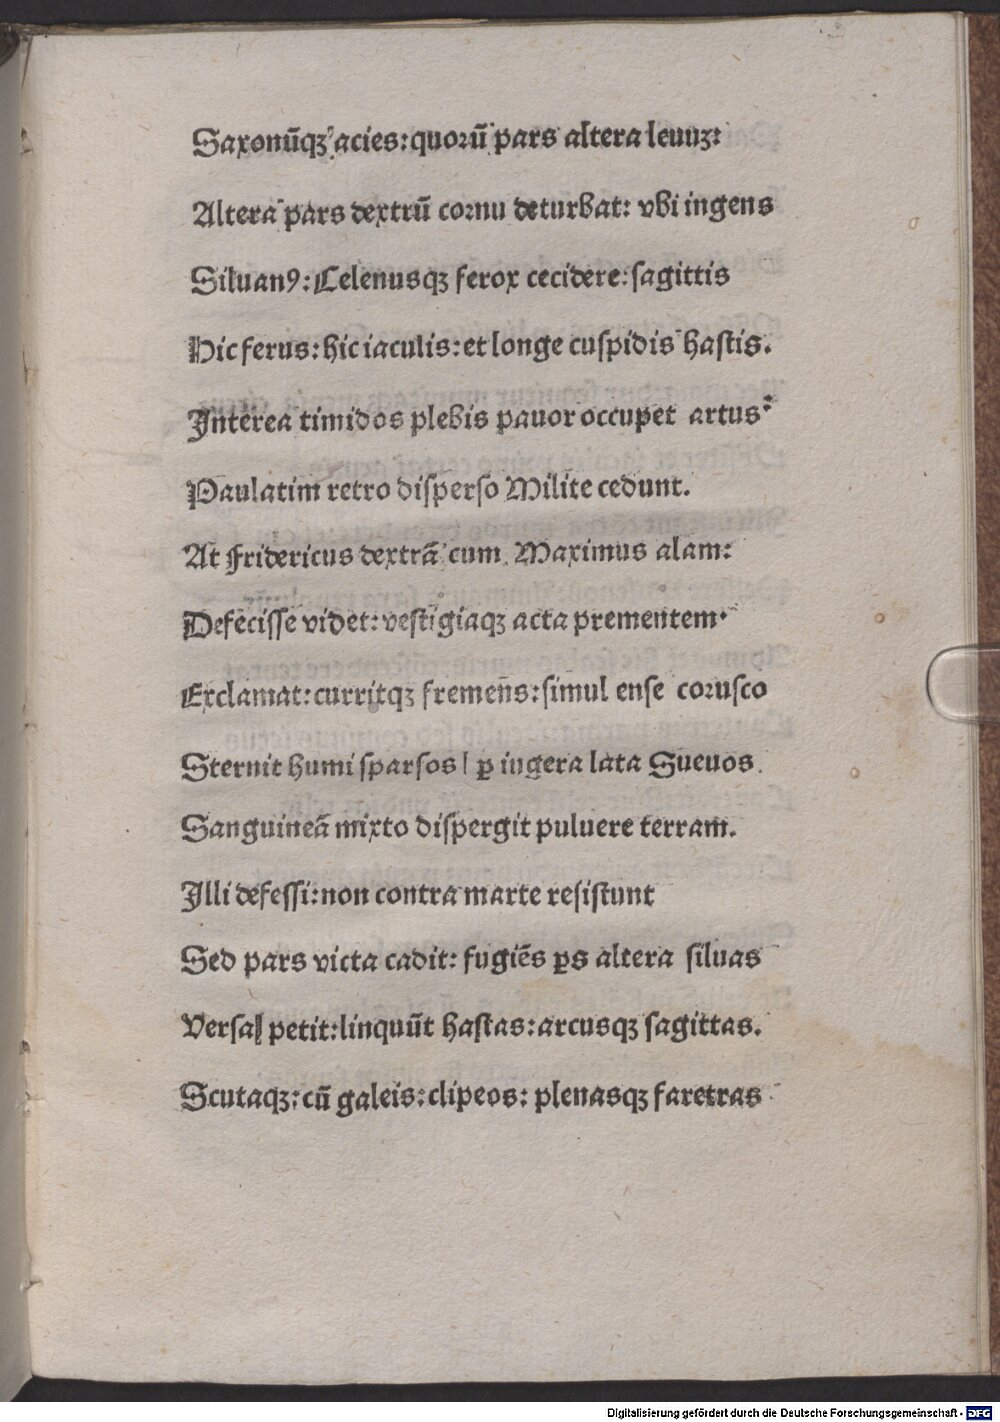 Saxonūqꝫ acies: quorū pars altera leuuꝫ:
Altera pars dextrū cornu deturbat: vbi ingens
Siluanꝰ: Celenusqꝫ ferox cecidere: sagittis
Hic ferus: hic iaculis: et longe cuspidis hastis.
Interea timidos plebis pauor occupet artus:
Paulatim retro disperso Milite cedunt.
At fridericus dextrā cum Maximus alam:
Defecisse videt: vestigiaqꝫ acta prementem.
Exclamat: curritqꝫ fremen̄s: simul ense corusco
Sternit humi sparsos| ꝑ iugera lata Sueuos.
Sanguineā mixto dispergit puluere terram.
Illi defessi: non contra marte resistunt
Sed pars victa cadit: fugiēs ꝑs altera siluas
Versa| petit: linquūt hastas: arcusqꝫ sagittas.
Scutaqꝫ: cū galeis: clipeos: plenasqꝫ faretras
Digitalisierung gefördert durch die Deutsche Forschungsgemeinschaft - DFG